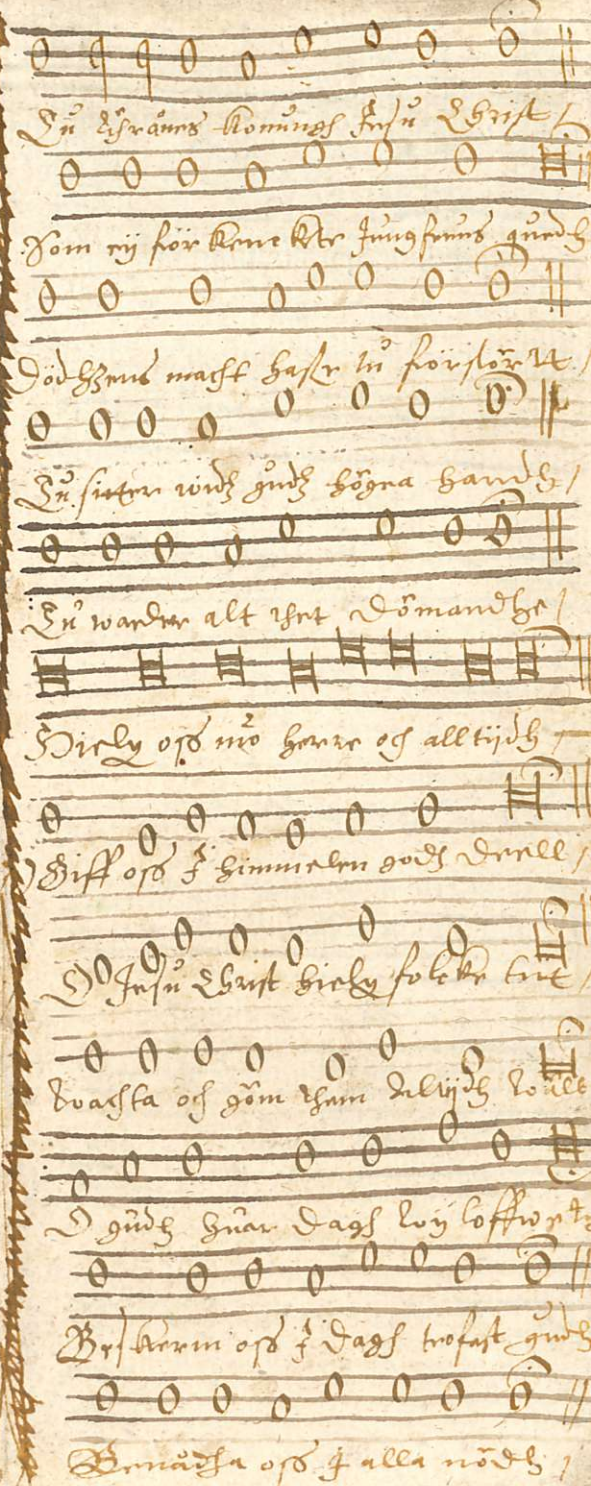 Tu Ährånes Konungh Jesu Christ /
Som eij förkenckte Jungfruns quedh
Dödhzens macht hafr tu förstörtt /
Tu sitter widh gudz högra handh /
Tu warder alt thet dömandhe /
Hielp oss nw herre och alltijdh
Giff oss J himmelen godh deell /
O Jesu Christ hielp folcke titt /
Wachta och göm them altijdh wäll
O gudh huar dagh wij loffwe
Beskerm oss J dagh trofast gudh
Benådha oss J alla nödh /